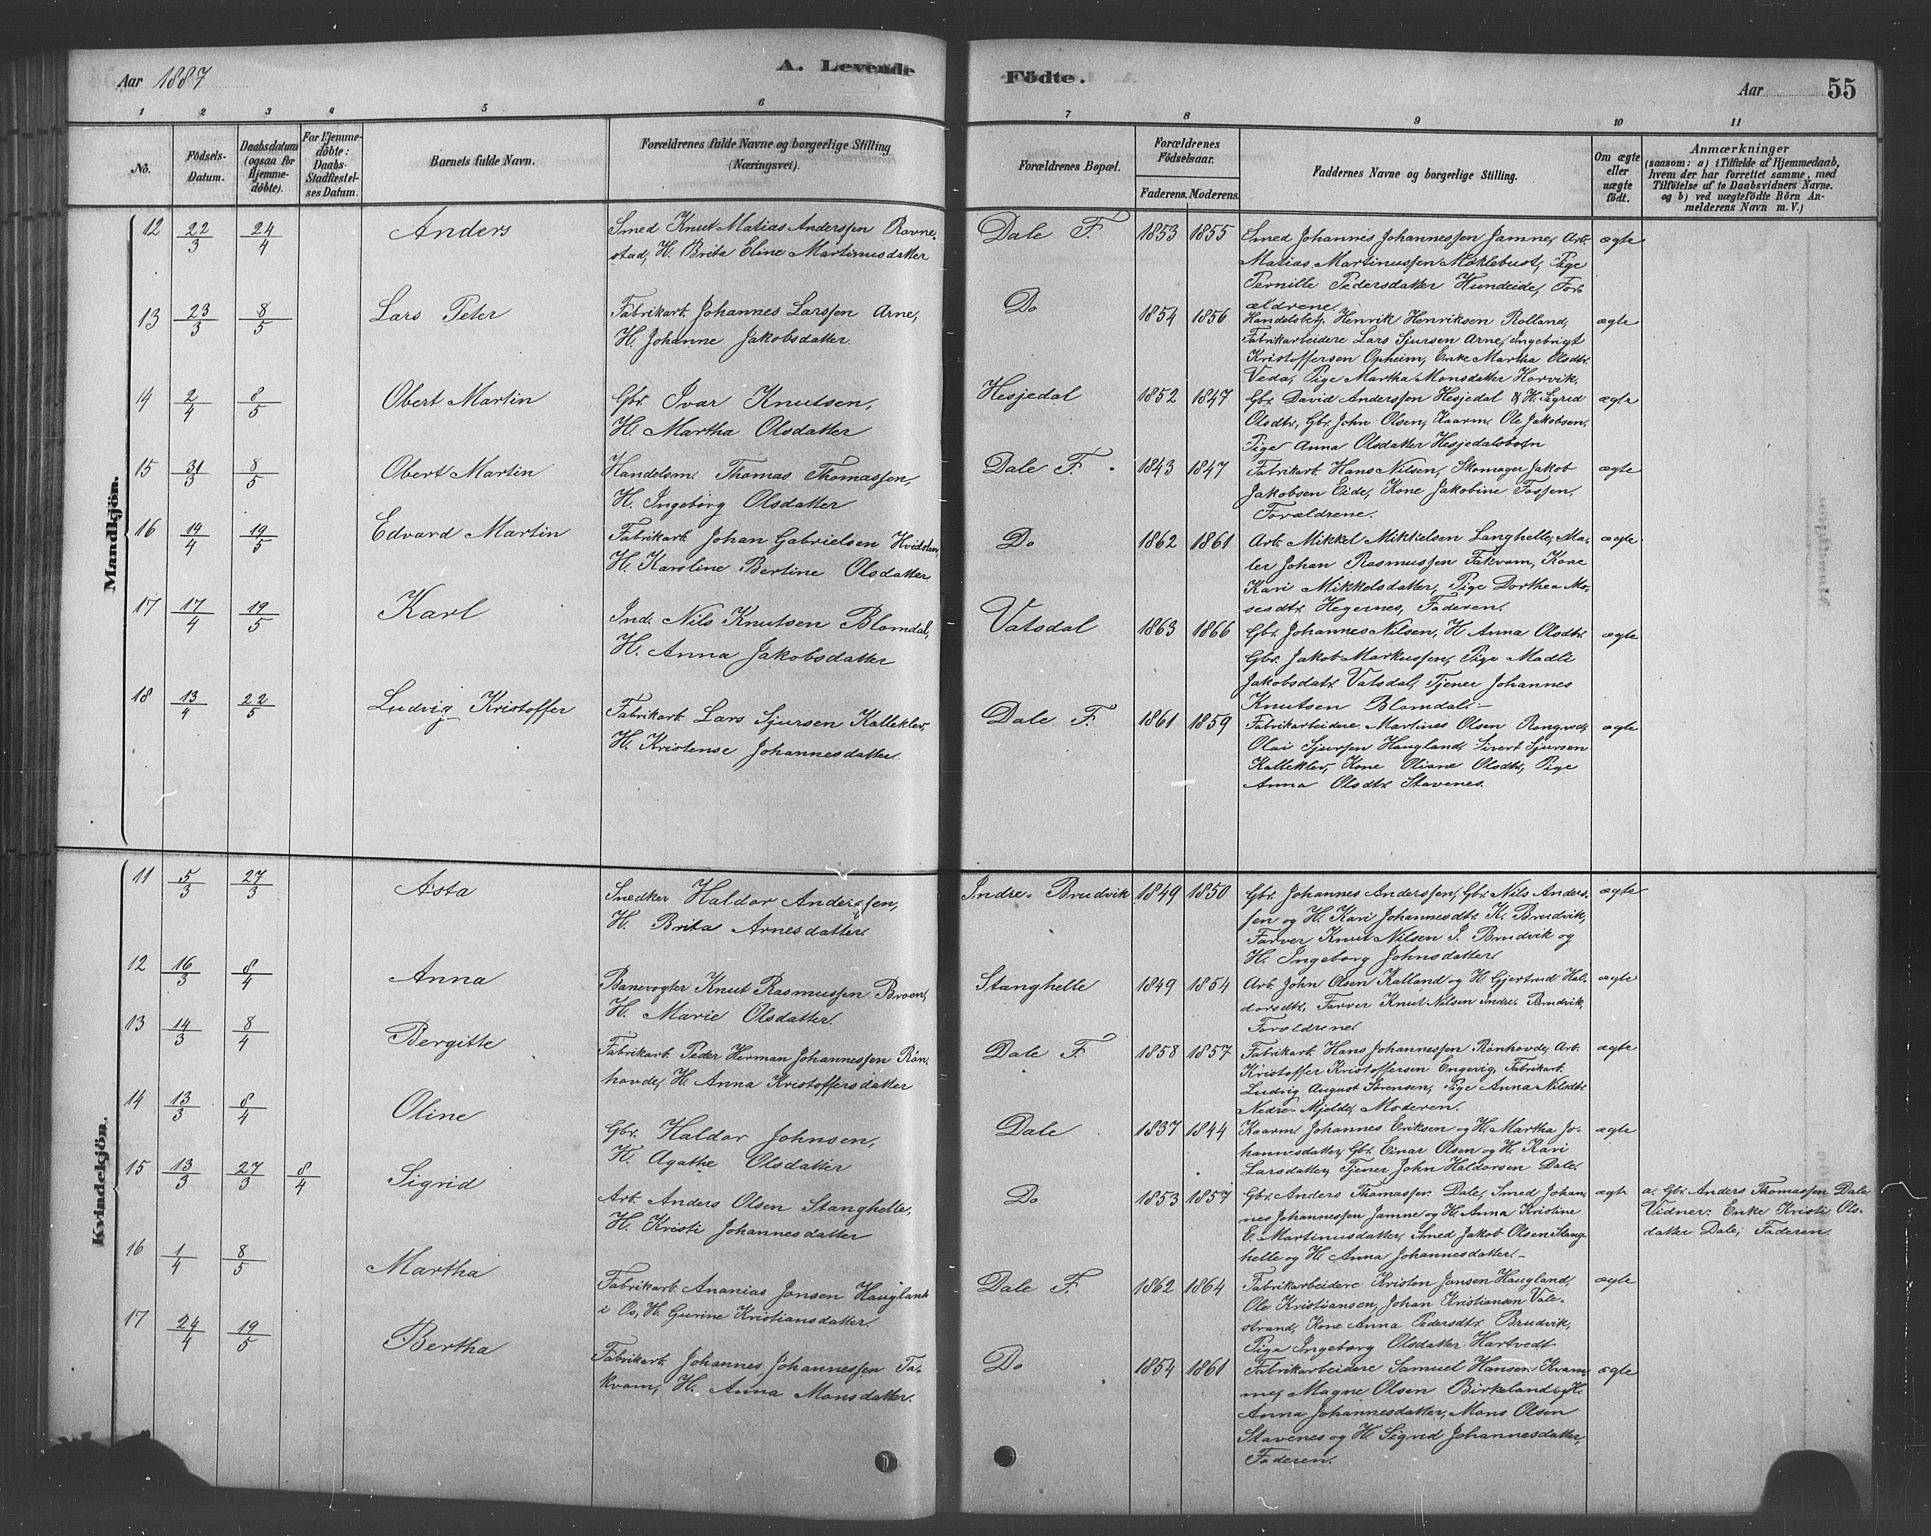 Aar 1887
A. Levende
Födte.
Aar
55
1 2 3 4 5 6 7 8 9 10 11
No.
Födsels-
Datum.
Daabsdatum
(ogsaa for
Hjemme-
döbte).
For Hjemme-
döbte:
Daabs-
Stadfæstel-
ses Datum.
Barnets fulde Navn.
Forældrenes fulde Navne og borgerlige Stilling
(Næringsvei).
Forældrenes Bopæl.
Forældrenes
Födselsaar.
Faderens. Moderens.
Faddernes Navne og borgerlige Stilling.
Om ægte
eller
uægte
födt.
Anmærkninger
(saasom: a) i Tilfælde af Hjemmedaab,
hvem der har forrettet samme, med
Tilföielse af to Daabsvidners Navne.
og b) ved uægtefödte Börn An-
melderens Navn m. V.)
Mandkjön.
12 22/3 24/4 Anders
Smed Knut Matias Anderssen Ravne-
stad, H. Brita Eline Martinusdatter
Dale F. 1853 1855
Smed Johannes Johannessen Jamne, Arb.
Matias Martinussen Möklebust, Pige
Pernille Pedersdatter Hundeide, For-
ældrene.
ægte
13 23/3 8/5 Lars Peter
Fabrikarb. Johannes Larssen Arne,
H. Johanne Jakobsdatter.
Do 1854 1856
Handelsbetj. Henrik Henriksen Rolland,
Fabrikarbeidere Lars Sjursen Arne, Ingebrigt
Kristoffersen Opheim, Enke Martha Olsdtr.
Veda, Pige Martha Monsdatter Horvik.
ægte
14 2/4 8/5 Obert Martin
Gbr. Ivar Knutsen,
H. Martha Olsdatter
Hesjedal 1852 1847
Gbr. David Anderssen Hesjedal & H. Sigrid
Olsdtr., Gbr. John Olsen, Kaarm. Ole Jakobsen,
Pige Anna Olsdatter Hesjedalsbotn
ægte
15 31/3 8/5 Obert Martin
Handelsm. Thomas Thomassen,
H. Ingeborg Olsdatter
Dale F. 1843 1847
Fabrikarb. Hans Nilsen, Skomager Jakob
Jakobsen Eide, Kone Jakobine Fossen,
Forældrene.
ægte
16 14/4 19/5 Edvard Martin
Fabrikarb. Johan Gabrielsen Hvidsten,
H. Karoline Bertine Olsdatter
Do 1862 1861
Arb. Mikkel Mikkelsen Langhelle, Ma-
ler Johan Rasmussen Fakvam, Kone
Kari Mikkelsdatter, Pige Dorthea Mo-
sesdtr. Hegernes, Faderen.
ægte
17 17/4 19/5 Karl
Ind. Nils Knutsen Blomdal,
H. Anna Jakobsdatter
Vatsdal 1863 1866
Gbr. Johannes Nilsen, H. Anna Olsdtr.
Gbr. Jakob Markussen, Pige Madli
Jakobsdatr. Vatsdal, Tjener Johannes
Knutsen Blomdal.
ægte
18 13/4 22/5 Ludvig Kristoffer
Fabrikarb. Lars Sjursen Kalleklev,
H. Kristense Johannesdatter.
Dale F. 1861 1859
Fabrikarbeidere Martines Olsen Rongved,
Olai Sjursen Haugland, Sivert Sjursen
Kalleklev, Kone Oliane Olsdtr, Pige
Anna Olsdtr. Stavenes.
ægte
Kvindekjön.
11 5/3 27/3 Asta
Snedker Haldor Anderssen,
H. Brita Arnesdatter.
Indre Brudvik 1849 1850
Gbr. Johannes Anderssen, Gbr. Nils Anders-
sen og H. Kari Johannesdtr. K. Brudvik,
Farver Knut Nilsen I. Brudvik og
H. Ingeborg Johnsdatter.
ægte
12 16/3 8/4 Anna
Banevogter Knut Rasmussen Broen,
H. Marie Olsdatter.
Stanghelle 1849 1854
Arb. John Olsen Kalland og H. Gjertrud Hal-
dorsdtr., Farver Knut Nilsen Indre Brudvik,
Forældrene.
ægte
13 14/3 8/4 Bergitte
Fabrikarb. Peder Herman Johannessen Rön-
hovde, H. Anna Kristoffersdatter
Dale F. 1858 1857
Fabrikarb. Hans Johannessen Rönhovde, Arb.
Kristoffer Kristoffersen Engevig, Fabrikarb.
Ludvig August Sörensen, Pige Anna Nilsdtr.
Nedre-Mjelde, Moderen.
ægte
14 13/3 8/4 Oline
Gbr. Haldor Johnsen,
H. Agathe Olsdatter
Dale 1837 1844
Kaarm. Johannes Eriksen og H. Martha Jo-
hannesdatter, Gbr. Einar Olsen og H. Kari
Larsdatter, Tjener John Haldorsen Dale.
ægte
15 13/3 27/3 8/4 Sigrid
Arb. Anders Olsen Stanghelle,
H. Kristi Johannesdatter
Do 1853 1857
Gbr. Anders Thomassen Dale, Smed Johan-
nes Johannessen Jamne og H. Anna Kristine
E. Martinusdatter, Smed Jakob Olsen Stang-
helle og H. Anna Johannesdatter.
ægte
a. Gbr. Anders Thomassen Dale.
Vidner: Enke Kristi Ols-
datter Dale, Faderen.
16 1/4 8/5 Martha
Fabrikarb. Ananias Jansen Haugland
i Os, H. Gurine Kristiansdatter.
Dale F. 1862 1864
Fabrikarbeidere Kristen Jansen Haugland,
Ole Kristiansen, Johan Kristiansen Vale-
strand, Kone Anna Pedersdtr. Brudvik,
Pige Ingeborg Olsdatter Hartvedt
ægte
17 24/4 19/5 Bertha
Fabrikarb. Johannes Johannessen Fa-
kvam, H. Anna Monsdatter.
Do 1854 1861
Fabrikarbeidere Samuel Hansen Kvam-
me, Magne Olsen Birkeland og H.
Anna Johannesdatter, Mons Olsen
Stavenes og H. Sigrid Johannesdatter,
Faderen.
ægte